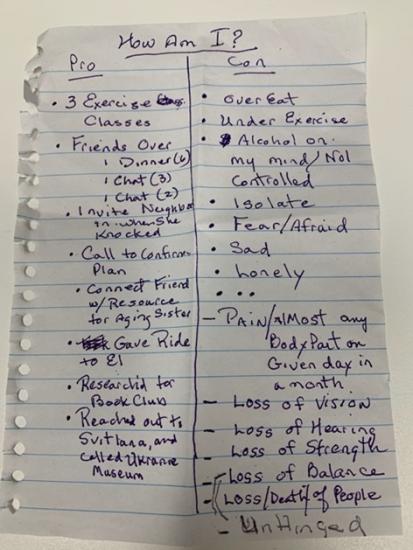 How Am I?
Pro
• 3 Exercise
Classes
• Friends Over
1 Dinner (6)
1 Chat (3)
1 Chat (2)
• Invite Neighbor
in when She
Knocked
• Call to Confirm
Plan
• Connect Friend
w/ Resource
for Aging Sister
• Gave Ride
to El
• Research'd for
Book Club
• Reached out to
Svitlana, and
called Ukraine
Museum
Con
• overEat
• Under Exercise
• Alcohol on
my mind/Not
Controlled
• Isolate
• Fear/Afraid
• Sad
• Lonely
• • •
- PAIN/AlMost any
Body Part on
Given day in
a month.
- Loss of Vision
- Loss of Hearing
- Loss of Strength
- Loss of Balance
- Loss/Death of People
- Unhinged